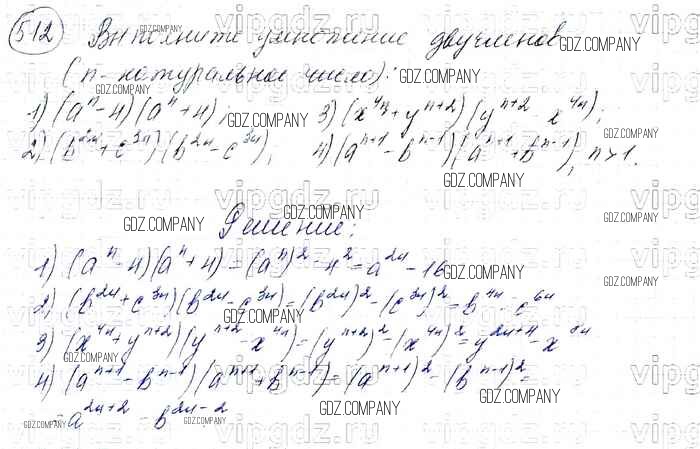 512 Выполните умножение двучленов
(n - натуральное число):
1) (aⁿ - 4)(aⁿ + 4); 3) (x⁴ⁿ + yⁿ⁺²)(yⁿ⁺² - x⁴ⁿ);
2) (b²ⁿ + c³ⁿ)(b²ⁿ - c³ⁿ); 4) (aⁿ⁺¹ - bⁿ⁻¹)(aⁿ⁺¹ + bⁿ⁻¹), n > 1.
Решение:
1) (aⁿ - 4)(aⁿ + 4) = (aⁿ)² - 4² = a²ⁿ - 16
2) (b²ⁿ + c³ⁿ)(b²ⁿ - c³ⁿ) = (b²ⁿ)² - (c³ⁿ)² = b⁴ⁿ - c⁶ⁿ
3) (x⁴ⁿ + yⁿ⁺²)(yⁿ⁺² - x⁴ⁿ) = (yⁿ⁺²)² - (x⁴ⁿ)² = y²ⁿ⁺⁴ - x⁸ⁿ
4) (aⁿ⁺¹ - bⁿ⁻¹)(aⁿ⁺¹ + bⁿ⁻¹) = (aⁿ⁺¹)² - (bⁿ⁻¹)² =
= a²ⁿ⁺² - b²ⁿ⁻²
GDZ.COMPANY
vipgdz.ru